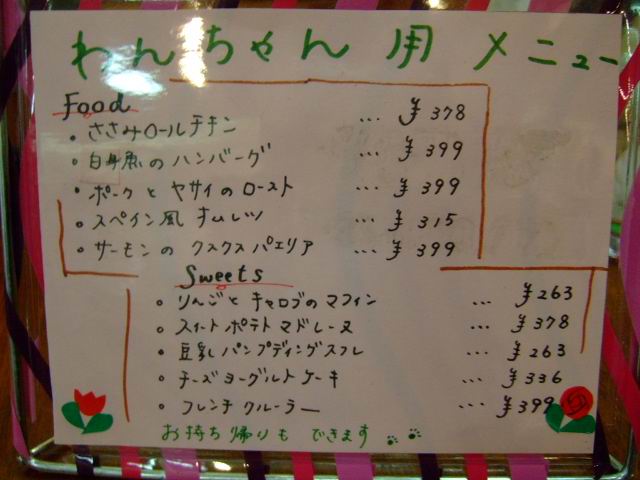 わんちゃん用メニュー
Food
• ささみロールチキン ... ¥378
• 白身魚のハンバーグ ... ¥399
• ポークとヤサイのロースト ... ¥399
• スペイン風オムレツ ... ¥315
• サーモンのクスクスパエリア ... ¥399
Sweets
• りんごとキャロブのマフィン ... ¥263
• スイートポテトマドレーヌ ... ¥378
• 豆乳パンプディングスフレ ... ¥263
• チーズヨーグルトケーキ ... ¥336
• フレンチクルーラー ... ¥399
お持ち帰りもできます